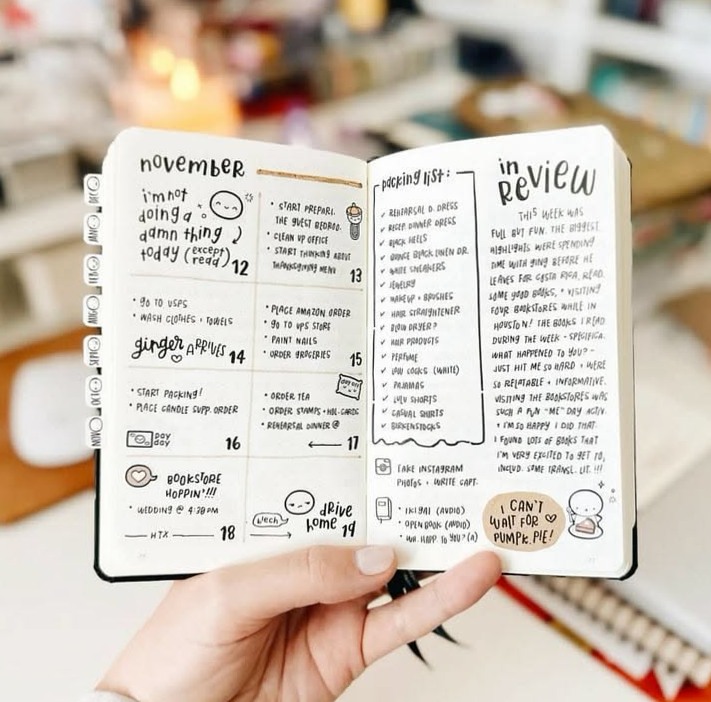 november
i'm not
doing a
damn thing
today (except
read) 12
• START PREPARI.
THE GUEST BEDROO.
• CLEAN UP OFFICE
• START THINKING ABOUT
THANKSGIVING MENU
13
• GO TO USPS
• WASH CLOTHES + TOWELS
ginger ARRIVES 14
• PLACE AMAZON ORDER
• GO TO UPS STORE
• PAINT NAILS
• ORDER GROCERIES 15
• START PACKING!
• PLACE CANDLE SUPP. ORDER
PAY
DAY
16
DAY OFF
• ORDER TEA
• ORDER STAMPS + HOL. CARDS
• REHEARSAL DINNER @
17
BOOKSTORE
HOPPIN'!!!
• WEDDING @ 4:30 PM
HTX 18
blech
drive
home 19
packing list:
✓ REHEARSAL D. DRESS
✓ RECEP. DINNER DRESS
✓ BLACK HEELS
✓ ORANGE BLACK LINEN DR.
✓ WHITE SNEAKERS
✓ JEWELRY
✓ MAKEUP + BRUSHES
✓ HAIR STRAIGHTENER
✓ BLOW DRYER?
✓ HAIR PRODUCTS
✓ PERFUME
✓ LOW SOCKS (WHITE)
✓ PAJAMAS
✓ LULU SHORTS
✓ CASUAL SHIRTS
✓ BIRKENSTOCKS
TAKE INSTAGRAM
PHOTOS + WRITE CAPT.
• IKIGAI (AUDIO)
• OPEN BOOK (AUDIO)
• WH. HAPP. TO YOU? (A)
in
REVIEW
THIS WEEK WAS
FULL BUT FUN. THE BIGGEST
HIGHLIGHTS WERE SPENDING
TIME WITH GING BEFORE HE
LEAVES FOR COSTA RICA, READ.
SOME GOOD BOOKS, + VISITING
FOUR BOOKSTORES WHILE IN
HOUSTON! THE BOOKS I READ
DURING THE WEEK - SPECIFICA.
WHAT HAPPENED TO YOU? -
JUST HIT ME SO HARD + WERE
SO RELATABLE + INFORMATIVE.
VISITING THE BOOKSTORES WAS
SUCH A FUN "ME" DAY ACTIV.
+ I'M SO HAPPY I DID THAT.
I FOUND LOTS OF BOOKS THAT
I'M VERY EXCITED TO GET TO,
INCLUD. SOME TRANSL. LIT. !!!
I CAN'T
WAIT FOR
PUMPK. PIE!
DEC
JAN
FEB
AUG
SEPT
OCT
NOV